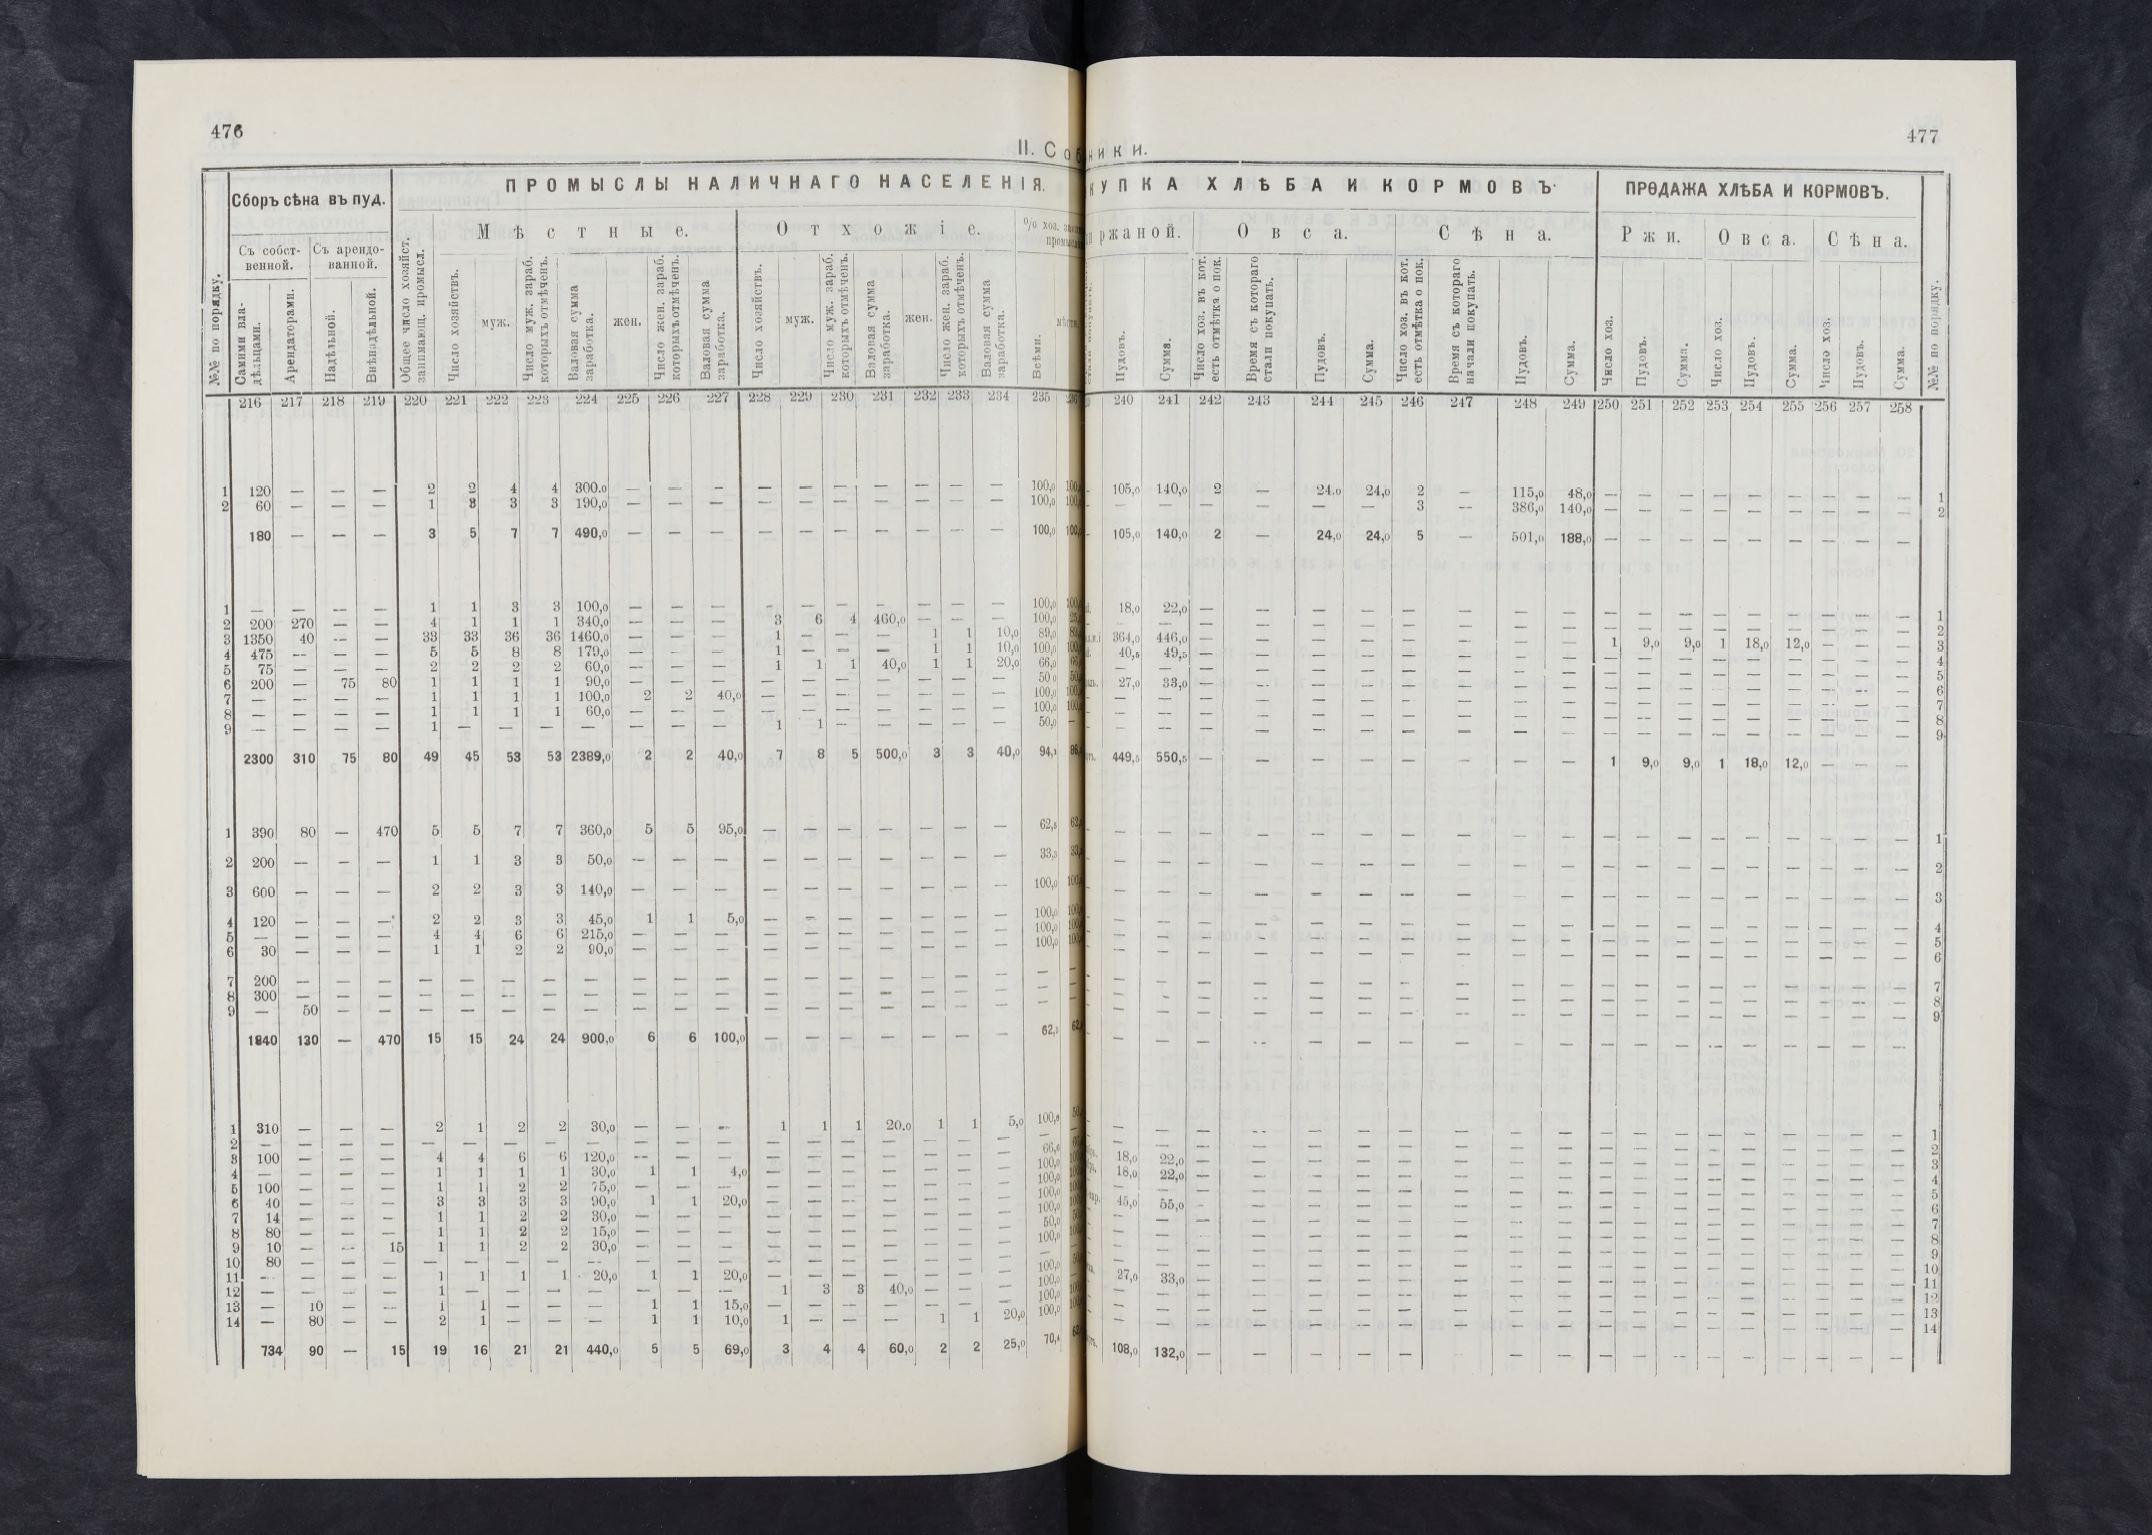 476
477
II. Соб
ники.
№№ по порядку.
Сборъ сѣна въ пуд.
ПРОМЫСЛЫ НАЛИЧНАГО НАСЕЛЕНІЯ.
КУПКА ХЛѢБА И КОРМОВЪ.
ПРОДАЖА ХЛѢБА И КОРМОВЪ.
№№ по порядку.
Съ собственной. Съ арендованной.
Мѣстные. Отхожіе. % хоз.
ржаной. Овса. Сѣна. Ржи. Овса. Сѣна.
Самими владѣльцами. Арендаторами. Надѣльной. Внѣнадѣльной. Общее число хозяйст. занимающ. промысл. Число хозяйствъ. муж. Число муж. зараб. которыхъ отмѣченъ. Валовая сумма заработка. жен. Число жен. зараб. которыхъ отмѣченъ. Валовая сумма заработка. Число хозяйствъ. муж. Число муж. зараб. которыхъ отмѣченъ. Валовая сумма заработка. жен. Число жен. зараб. которыхъ отмѣченъ. Валовая сумма заработка. Всѣми.
Пудовъ. Сумма. Число хоз. въ кот. есть отмѣтка о пок. Время съ котораго стали покупать. Пудовъ. Сумма. Число хоз. въ кот. есть отмѣтка о пок. Время съ котораго начали покупать. Пудовъ. Сумма. Число хоз. Пудовъ. Сумма. Число хоз. Пудовъ. Сумма. Число хоз. Пудовъ. Сумма.
216 217 218 219 220 221 222 223 224 225 226 227 228 229 230 231 232 233 234 235
240 241 242 243 244 245 246 247 248 249 250 251 252 253 254 255 256 257 258
1 120 — — — 2 2 4 4 300,0 — — — — — — — — — — 100,0 105,0 140,0 2 — 24,0 24,0 2 — 115,0 48,0 — — — — — — — — — 1
2 60 — — — 1 3 3 3 190,0 — — — — — — — — — — 100,0 — — — — — — 3 — 386,0 140,0 — — — — — — — — — 2
180 — — — 3 5 7 7 490,0 — — — — — — — — — — 100,0 105,0 140,0 2 — 24,0 24,0 5 — 501,0 188,0 — — — — — — — — —
1 — — — — 1 1 3 3 100,0 — — — — — — — — — — 100,0 18,0 22,0 — — — — — — — — — — — — — — — — — 1
2 200 270 — — 4 1 1 1 340,0 — — — 3 6 4 460,0 — — — 100,0 — — — — — — — — — — — — — — — — — — — 2
3 1350 40 — — 33 33 36 36 1460,0 — — — 1 — — — 1 1 10,0 89,0 364,0 446,0 — — — — — — — — 1 9,0 9,0 1 18,0 12,0 — — — 3
4 475 — — — 5 5 8 8 179,0 — — — 1 — — — 1 1 10,0 100,0 40,5 49,5 — — — — — — — — — — — — — — — — — 4
5 75 — — — 2 2 2 2 60,0 — — — 1 1 1 40,0 1 1 20,0 66,0 — — — — — — — — — — — — — — — — — — — 5
6 200 — 75 80 1 1 1 1 90,0 — — — — — — — — — — 50,0 27,0 33,0 — — — — — — — — — — — — — — — — — 6
7 — — — — 1 1 1 1 100,0 2 2 40,0 — — — — — — — 100,0 — — — — — — — — — — — — — — — — — — — 7
8 — — — — 1 1 1 1 60,0 — — — — — — — — — — 100,0 — — — — — — — — — — — — — — — — — — — 8
9 — — — — 1 — — — — — — — 1 1 — — — — — 50,0 — — — — — — — — — — — — — — — — — — — 9
2300 310 75 80 49 45 53 53 2389,0 2 2 40,0 7 8 5 500,0 3 3 40,0 94,1 449,5 550,5 — — — — — — — — 1 9,0 9,0 1 18,0 12,0 — — —
1 390 80 — 470 5 5 7 7 360,0 5 5 95,0 — — — — — — — 62,5 — — — — — — — — — — — — — — — — — — — 1
2 200 — — — 1 1 3 3 50,0 — — — — — — — — — — 33,3 — — — — — — — — — — — — — — — — — — — 2
3 600 — — — 2 2 3 3 140,0 — — — — — — — — — — 100,0 — — — — — — — — — — — — — — — — — — — 3
4 120 — — — 2 2 3 3 45,0 1 1 5,0 — — — — — — — 100,0 — — — — — — — — — — — — — — — — — — — 4
5 — — — — 4 4 6 6 215,0 — — — — — — — — — — 100,0 — — — — — — — — — — — — — — — — — — — 5
6 30 — — — 1 1 2 2 90,0 — — — — — — — — — — 100,0 — — — — — — — — — — — — — — — — — — — 6
7 200 — — — — — — — — — — — — — — — — — — — — — — — — — — — — — — — — — — — — — — 7
8 300 — — — — — — — — — — — — — — — — — — — — — — — — — — — — — — — — — — — — — — 8
9 — 50 — — — — — — — — — — — — — — — — — — — — — — — — — — — — — — — — — — — — — 9
1840 130 — 470 15 15 24 24 900,0 6 6 100,0 — — — — — — — 62,5 — — — — — — — — — — — — — — — — — — —
1 310 — — — 2 1 2 2 30,0 — — — 1 1 1 20,0 1 1 5,0 100,0 — — — — — — — — — — — — — — — — — — — 1
2 — — — — — — — — — — — — — — — — — — — — — — — — — — — — — — — — — — — — — — — 2
3 100 — — — 4 4 6 6 120,0 — — — — — — — — — — 66,6 18,0 22,0 — — — — — — — — — — — — — — — — — 3
4 — — — — 1 1 1 1 30,0 1 1 4,0 — — — — — — — 100,0 18,0 22,0 — — — — — — — — — — — — — — — — — 4
5 100 — — — 1 1 2 2 75,0 — — — — — — — — — — 100,0 — — — — — — — — — — — — — — — — — — — 5
6 40 — — — 3 3 3 3 90,0 1 1 20,0 — — — — — — — 100,0 45,0 55,0 — — — — — — — — — — — — — — — — — 6
7 14 — — — 1 1 2 2 30,0 — — — — — — — — — — 100,0 — — — — — — — — — — — — — — — — — — — 7
8 80 — — — 1 1 2 2 15,0 — — — — — — — — — — 50,0 — — — — — — — — — — — — — — — — — — — 8
9 10 — — 15 1 1 2 2 30,0 — — — — — — — — — — 100,0 — — — — — — — — — — — — — — — — — — — 9
10 80 — — — — — — — — — — — — — — — — — — — — — — — — — — — — — — — — — — — — — — 10
11 — — — — 1 1 1 1 20,0 1 1 20,0 — — — — — — — 100,0 27,0 33,0 — — — — — — — — — — — — — — — — — 11
12 — — — — 1 — — — — — — — 1 3 3 40,0 — — — 100,0 — — — — — — — — — — — — — — — — — — — 12
13 — 10 — — 1 1 — — — 1 1 15,0 — — — — — — — 100,0 — — — — — — — — — — — — — — — — — — — 13
14 — 80 — — 2 1 — — — 1 1 10,0 1 — — — 1 1 20,0 100,0 — — — — — — — — — — — — — — — — — — — 14
734 90 — 15 19 16 21 21 440,0 5 5 69,0 3 4 4 60,0 2 2 25,0 70,4 108,0 132,0 — — — — — — — — — — — — — — — — —